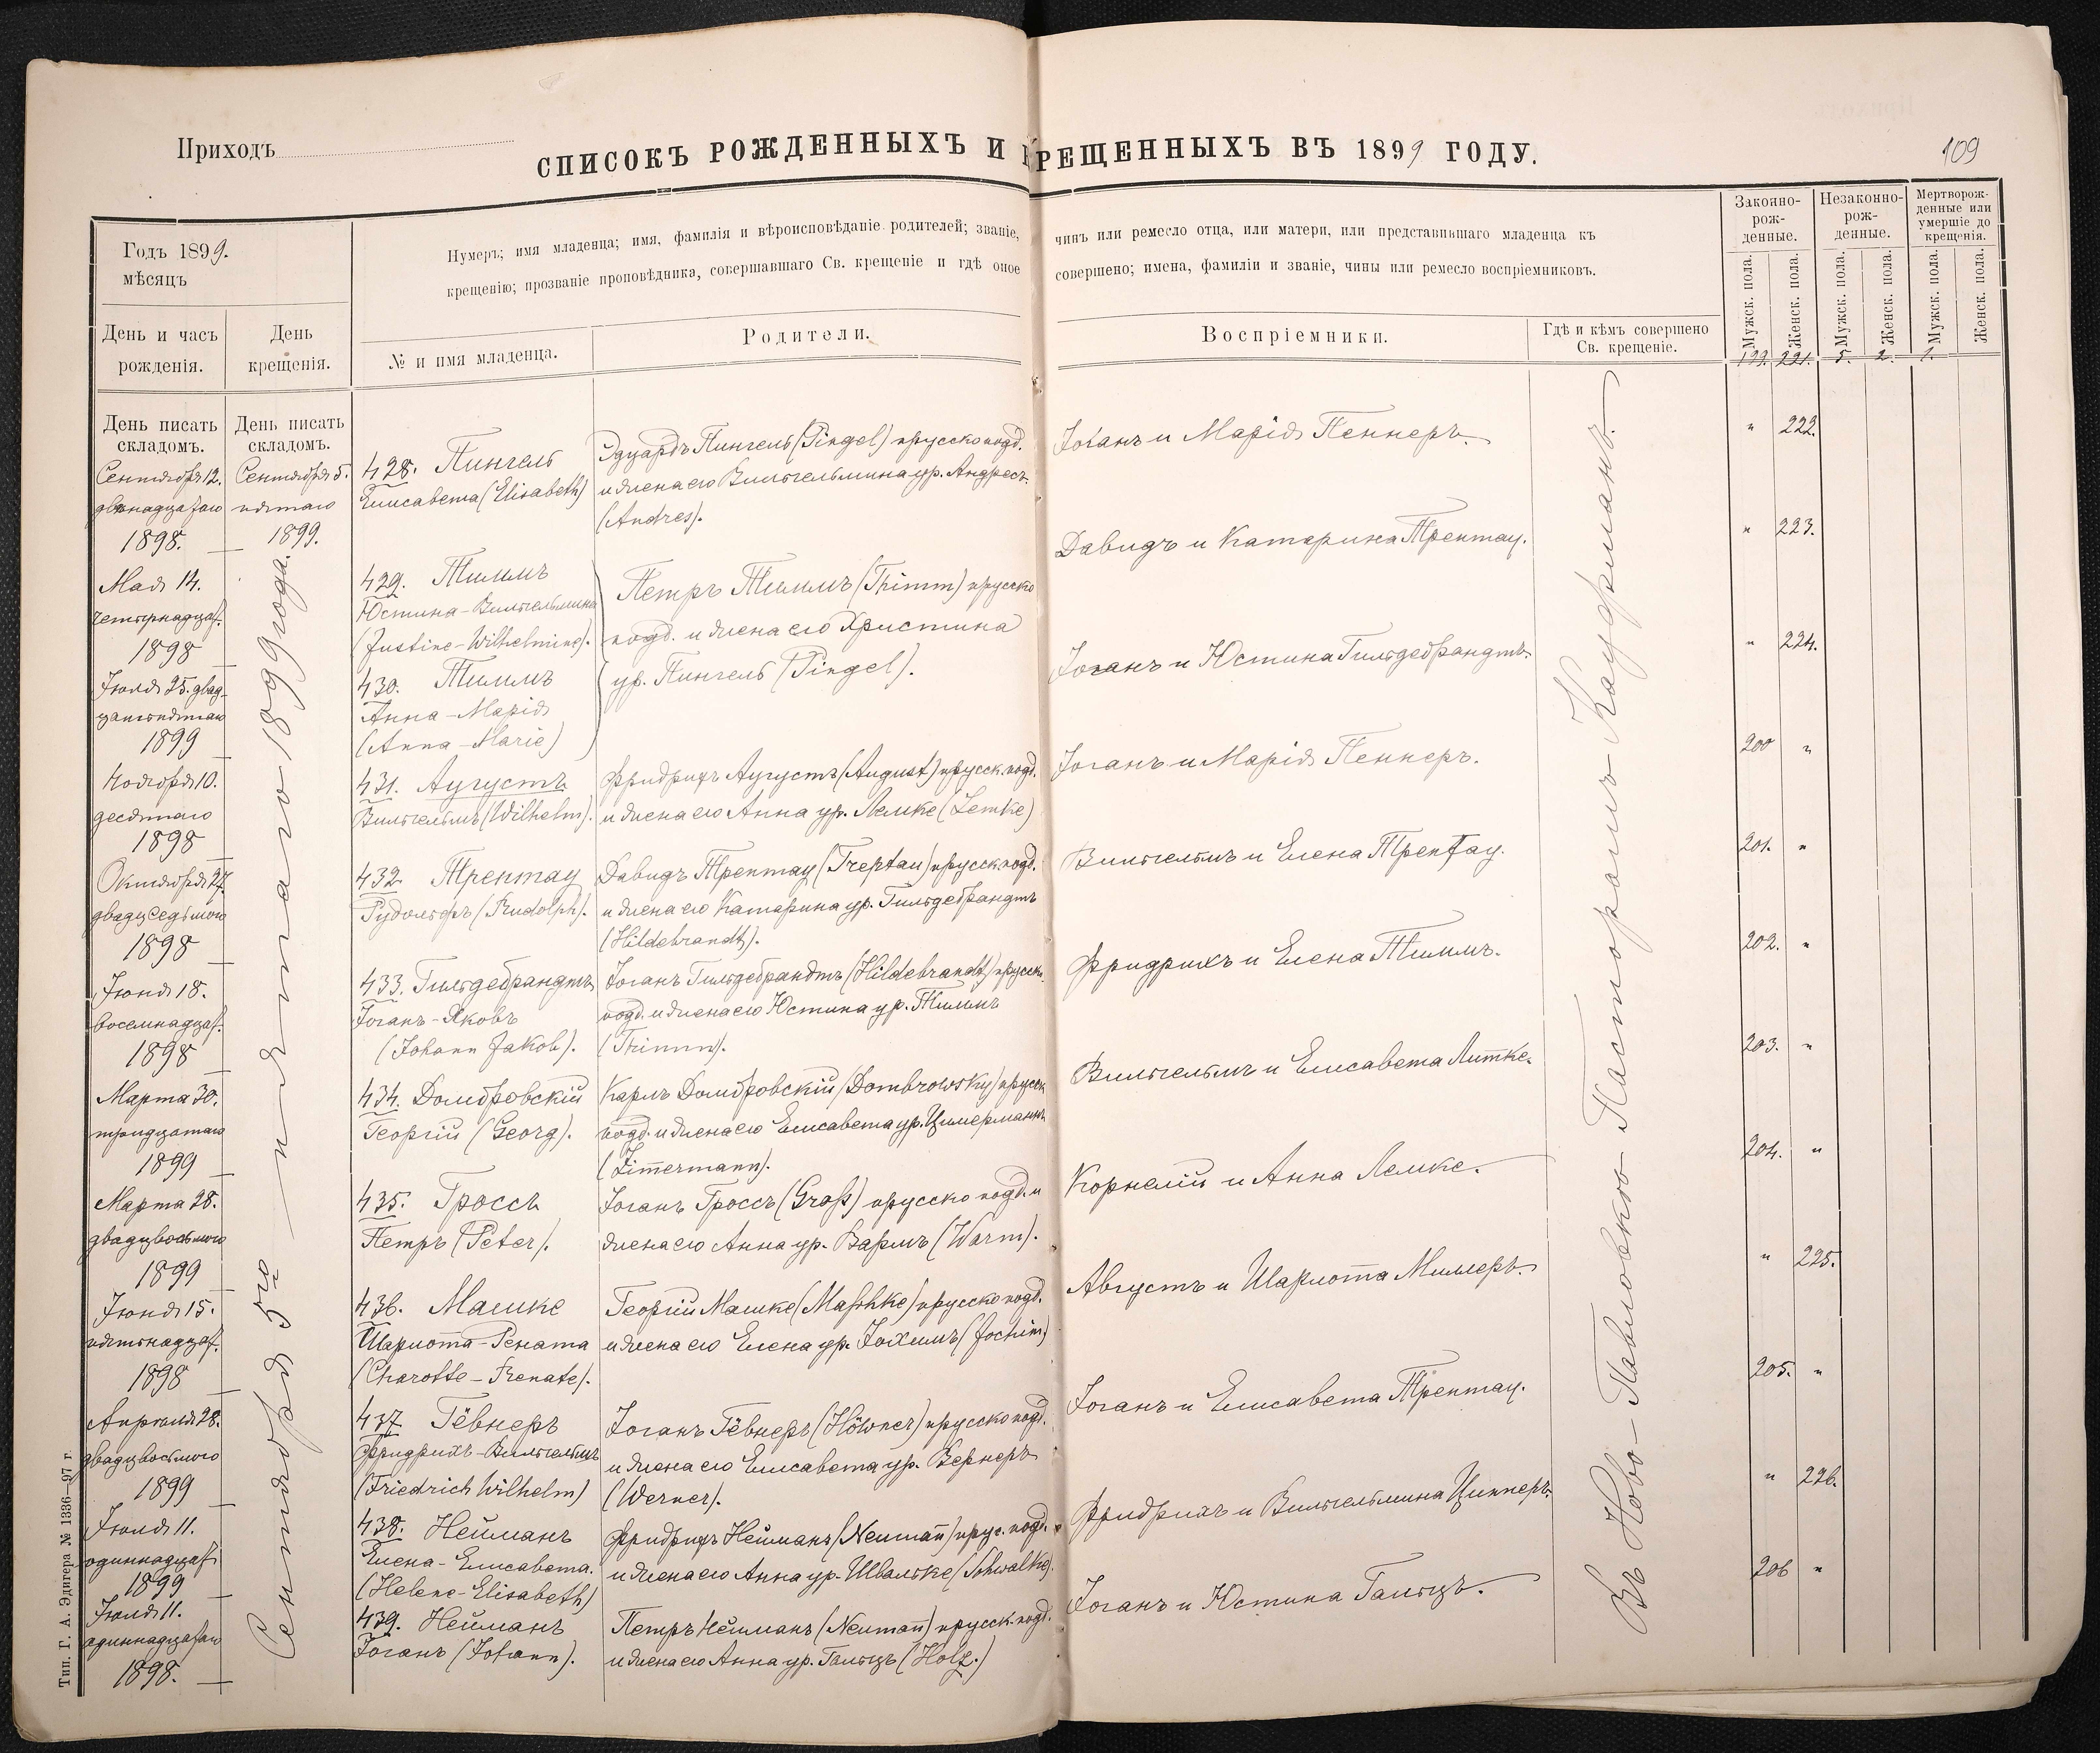 Приходъ
СПИСОКЪ РОЖДЕННЫХЪ И КРЕЩЕННЫХЪ ВЪ 1899 ГОДУ.
109
Годъ 1899.
мѣсяцъ
Нумеръ; имя младенца; имя, фамилія и вѣроисповѣданіе родителей; званіе, чинъ или ремесло отца, или матери, или представившаго младенца къ
крещенію; прозваніе проповѣдника, совершавшаго Св. крещеніе и гдѣ оное совершено; имена, фамиліи и званіе, чины или ремесло воспріемниковъ.
Законно-
рож-
денные.
Незаконно-
рож-
денные.
Мертворож-
денные или
умершіе до
крещенія.
День и часъ
рожденія.
День
крещенія.
№ и имя младенца.
Родители.
Воспріемники.
Гдѣ и кѣмъ совершено
Св. крещеніе.
Мужск. пола.
Женск. пола.
Мужск. пола.
Женск. пола.
Мужск. пола.
Женск. пола.
199. 221. 5. 2. 1.
День писать
складомъ.
День писать
складомъ.
Сентября 12.
двѣнадцатаго
1898.
Сентября 5.
пятаго
1899.
428. Пингель
Елисавета (Elisabeth)
Эдуардъ Пингель (Pingel) прусско подд.
и жена его Вильгельмина ур. Андресъ
(Andres).
Іоганъ и Марія Пеннеръ.
" 222.
Мая 14.
четырнадцат.
1898
429. Тиммъ
Юстина-Вильгельмина
(Justine-Wilhelmine).
Петръ Тиммъ (Thimm) прусско
подд. и жена его Христина
ур. Пингель (Pingel).
Давидъ и Катарина Трептау.
" 223.
Іюля 25. двад-
цатьпятаго
1899
430. Тиммъ
Анна-Марія
(Anna-Marie)
Іоганъ и Юстина Гильдебрандтъ.
" 224.
Ноября 10.
десятаго
1898
431. Аугустъ
Вильгельмъ (Wilhelm).
Фридрихъ Аугустъ (August) прусск. подд.
и жена его Анна ур. Лемке (Lemke)
Іоганъ и Марія Пеннеръ.
200 "
Октября 27
двадцседьмого
1898
432. Трептау
Рудольфъ (Rudolph).
Давидъ Трептау (Treptau) прусск. подд.
и жена его Катарина ур. Гильдебрандтъ
(Hildebrandt).
Вильгельмъ и Елена Трептау.
201. "
Іюня 18.
восемнадцат.
1898
433. Гильдебрандтъ
Іоганъ-Яковъ
(Johann Jakob).
Іоганъ Гильдебрандтъ (Hildebrandt) прусск.
подд. и жена его Юстина ур. Тиммъ
(Thimm).
Фридрихъ и Елена Тиммъ.
202. "
Марта 30.
тридцатаго
1899
434. Домбровскій
Георгій (Georg).
Карлъ Домбровскій (Dombrowsky) прусск
подд. и жена его Елисавета ур. Цимерманнъ
(Zimermann).
Вильгельмъ и Елисавета Литке.
203. "
Марта 28.
двадцвосьмого
1899
435. Гроссъ
Петръ (Peter).
Іоганъ Гроссъ (Groß) прусско подд. и
жена его Анна ур. Вармъ (Warm).
Корнелій и Анна Лемке.
204. "
Іюня 15.
пятьнадцат.
1898
436. Машке
Шарлота-Рената
(Charotte-Renate).
Георгій Машке (Mashke) прусско подд.
и жена его Елена ур. Іохимъ (Jochim)
Августъ и Шарлота Миллеръ.
" 225.
Апрѣля 28.
двадцвосьмого
1899
437. Гёвнеръ
Фридрихъ-Вильгельмъ
(Friedrich Wilhelm)
Іоганъ Гёвнеръ (Höwner) прусско подд.
и жена его Елисавета ур. Вернеръ
(Werner).
Іоганъ и Елисавета Трептау.
205. "
Іюля 11.
одиннадцат
1899
438. Нейманъ
Елена-Елисавета.
(Helene-Elisabeth)
Фридрихъ Нейманъ (Neumañ) прус. подд.
и жена его Анна ур. Швальке (Schwalke).
Фридрихъ и Вильгельмина Циннеръ.
" 226.
Іюля 11.
одиннадцатаго
1898.
439. Нейманъ
Іоганъ (Johann).
Петръ Нейманъ (Neumañ) прусск. подд.
и жена его Анна ур. Гальцъ (Holz.)
Іоганъ и Юстина Гальцъ.
206 "
Сентября 5го — пятаго 1899 года.
Въ Ново-Павловкѣ Пасторомъ Кауфманъ.
Тип. Г. А. Эдигера № 1336—97 г.